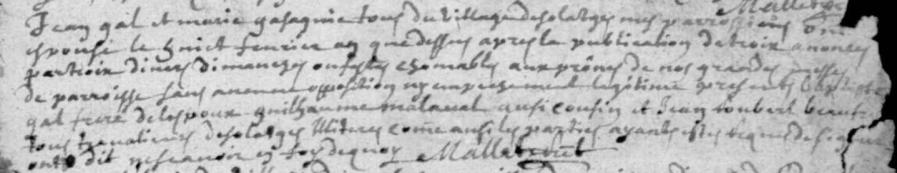 Jean gal et marie gasagnie tous du village desolatges mes parroissiens ont
espouse le huict feurier an que dessus apres la publication de troix anonces
par troix diuers dimanches ou festes chomables aux prônes de nos grandes messes
de parroisse sans aucune opposition ny empeschement legitime presents baptiste
gal frere de lespoux guilhaume malaval aussi cousin et Jean joubert beau fre
tous trauailieurs desolatges illiteres come aussi les parties ayants estes requis de signer
ont dit ne scauoir en foy de quoy Malleb